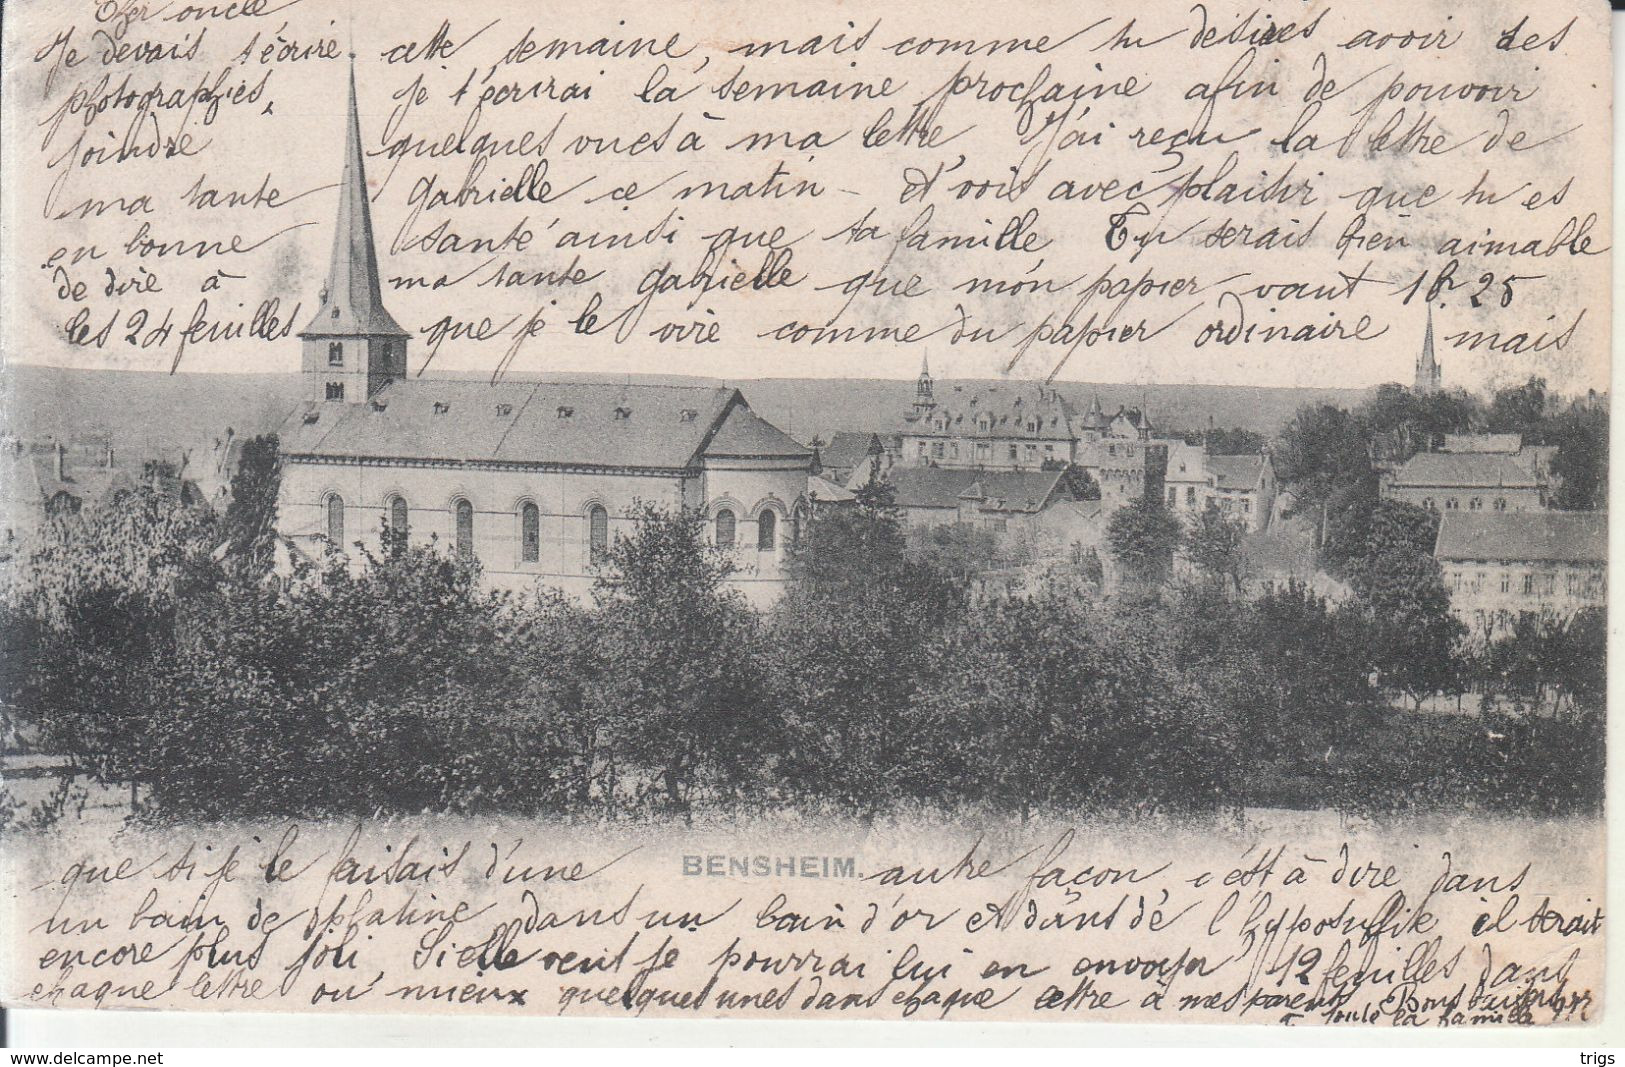 Cher oncle
Je devais t'écrire cette semaine, mais comme tu désires avoir des
photographies, je t'écrirai la semaine prochaine afin de pouvoir
joindre quelques vues à ma lettre, J'ai reçu la lettre de
ma tante Gabrielle ce matin - Et vois avec plaisir que tu es
en bonne santé ainsi que ta famille, Tu serais bien aimable
de dire à ma tante Gabrielle que mon papier vaut 1fr 25
les 24 feuilles que je le vire comme du papier ordinaire mais
que si je le faisais d'une BENSHEIM. autre façon, c'est à dire dans
un bain de platine dans un bain d'or et dans de l'hyposulfite il serait
encore plus joli, Si elle veut je pourrai lui en envoyer 12 feuilles dans
chaque lettre ou mieux quelques unes dans chaque lettre à mes parents Bons baisers
à toute la famille
trigs